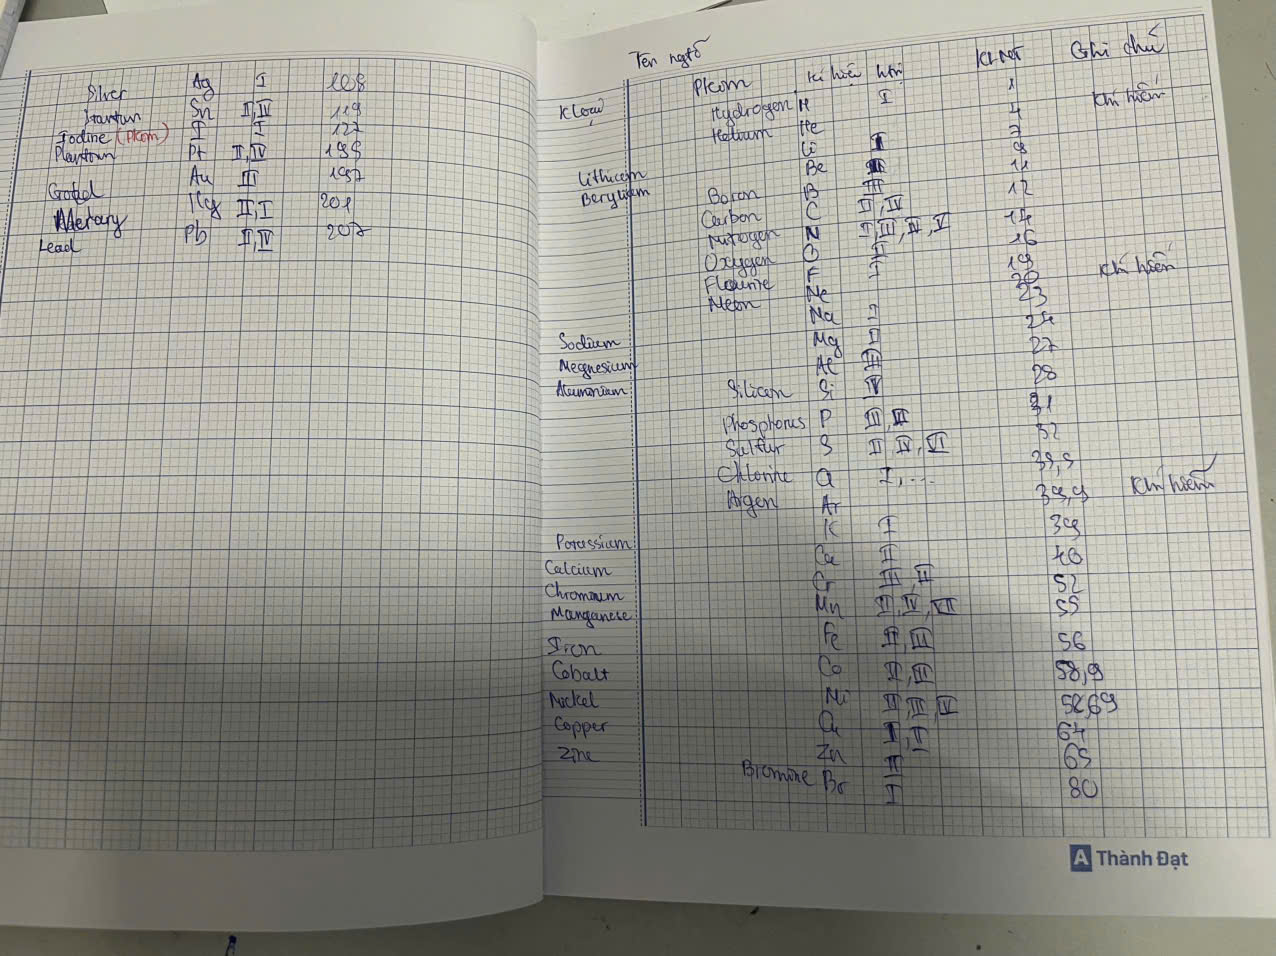 Silver Ag I 108
Stantun Sn II,IV 119
Iodine (Pkom) I I 127
Plantium Pt II,IV 195
Gold Au III 197
Mercury Hg II,I 201
Lead Pb II,IV 207
Tên ngtố
Kloại Pkom Kí hiệu htrị KLNT Ghi chú
Hydrogen H I 1
Helium He 4 Khí hiếm
Lithium Li I 7
Beryllium Be II 9
Boron B III 11
Carbon C II,IV 12
Nitrogen N I,III,IV,V 14
Oxygen O II 16
Flourine F I 19
Neon Ne 20 Khí hiếm
Sodium Na I 23
Megnesium Mg II 24
Alumonium Al III 27
Silicon Si IV 28
Phosphorus P III,V 31
Sulfur S II IV,VI 32
Chlorine Cl I,... 35,5
Argen Ar 39,9 Khí hiếm
Potassium K I 39
Calcium Ca II 40
Chromium Cr III,II 52
Manganese Mn II,IV,VII 55
Iron Fe II,III 56
Cobalt Co II,III 58,9
Nickel Ni II,III,IV 58,69
Copper Cu I,II 64
Zinc Zn II 65
Bromine Br I 80
A Thành Đạt